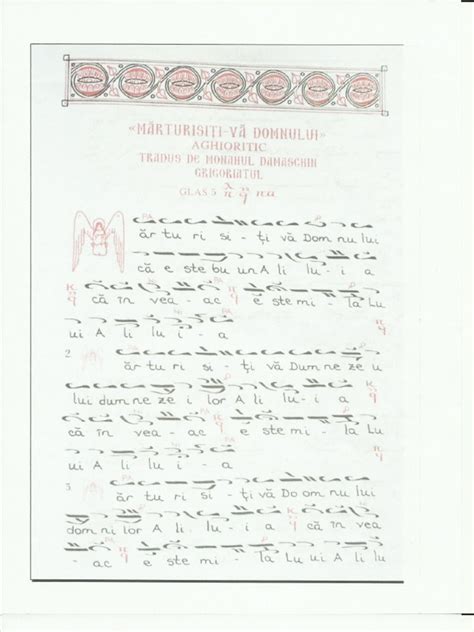 «MĂRTURISIȚI-VĂ DOMNULUI»
AGHIORITIC
TRADUS DE MONAHUL DAMASCHIN
GRIGORIATUL
GLAS 5
ăr tu ri si - ți vă Dom nu lui
că e ste bu un A li lu - i a
că în vea - ac e ste mi - la Lu
ui A li lu i - a
2 ăr tu ri si - ți vă Dum ne ze u
lui dum ne ze i lor A li lu - i a
că în vea - ac e ste mi - la Lu
ui A li lu i - a
3 ăr tu ri si - ți vă Do om nu lui
dom ni lor A li lu - i a că în vea
- ac e ste mi - la Lu ui A li lu